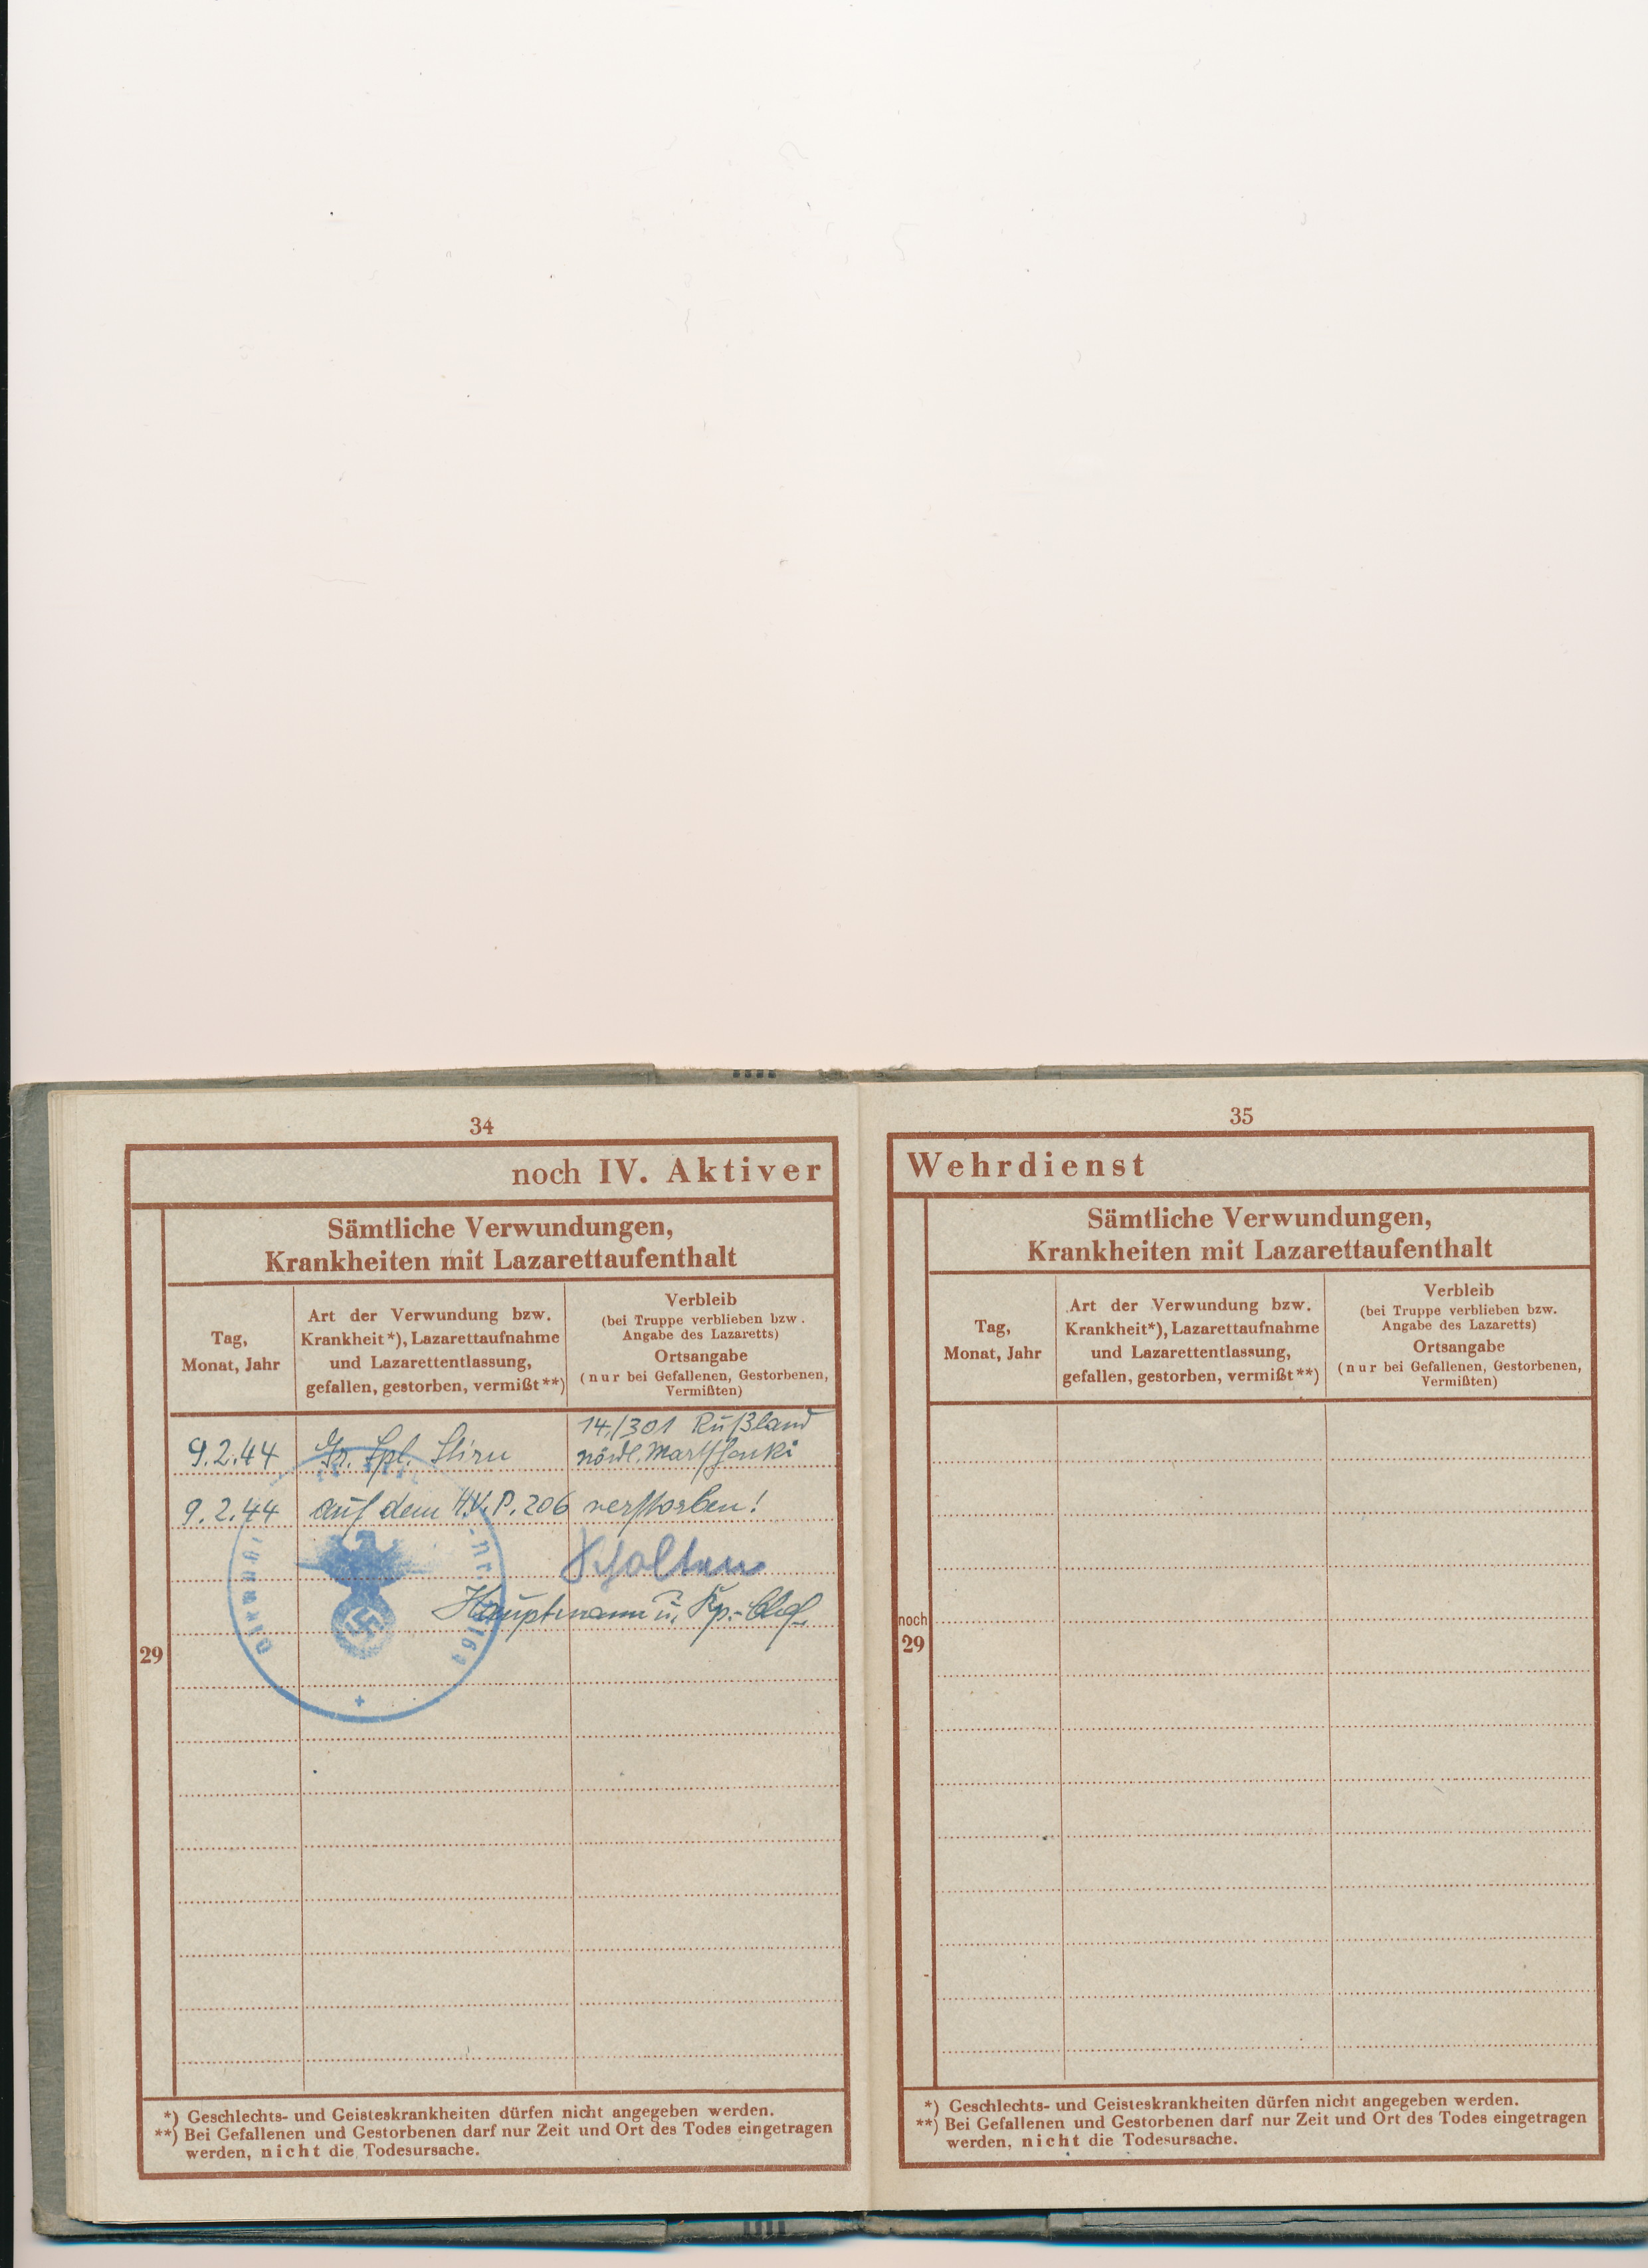 34
noch IV. Aktiver
Sämtliche Verwundungen,
Krankheiten mit Lazarettaufenthalt
Tag,
Monat, Jahr
Art der Verwundung bzw.
Krankheit*), Lazarettaufnahme
und Lazarettentlassung,
gefallen, gestorben, vermißt**)
Verbleib
(bei Truppe verblieben bzw.
Angabe des Lazaretts)
Ortsangabe
(nur bei Gefallenen, Gestorbenen,
Vermißten)
14./301 Rußland
9.2.44 Gr. Spl. Stirn nördl.
9.2.44 auf dem H.V.P. 206 verstorben!
Hauptmann u. Kp.-Chef.
29
*) Geschlechts- und Geisteskrankheiten dürfen nicht angegeben werden.
**) Bei Gefallenen und Gestorbenen darf nur Zeit und Ort des Todes eingetragen
werden, nicht die Todesursache.
35
Wehrdienst
Sämtliche Verwundungen,
Krankheiten mit Lazarettaufenthalt
Tag,
Monat, Jahr
Art der Verwundung bzw.
Krankheit*), Lazarettaufnahme
und Lazarettentlassung,
gefallen, gestorben, vermißt**)
Verbleib
(bei Truppe verblieben bzw.
Angabe des Lazaretts)
Ortsangabe
(nur bei Gefallenen, Gestorbenen,
Vermißten)
noch
29
*) Geschlechts- und Geisteskrankheiten dürfen nicht angegeben werden.
**) Bei Gefallenen und Gestorbenen darf nur Zeit und Ort des Todes eingetragen
werden, nicht die Todesursache.